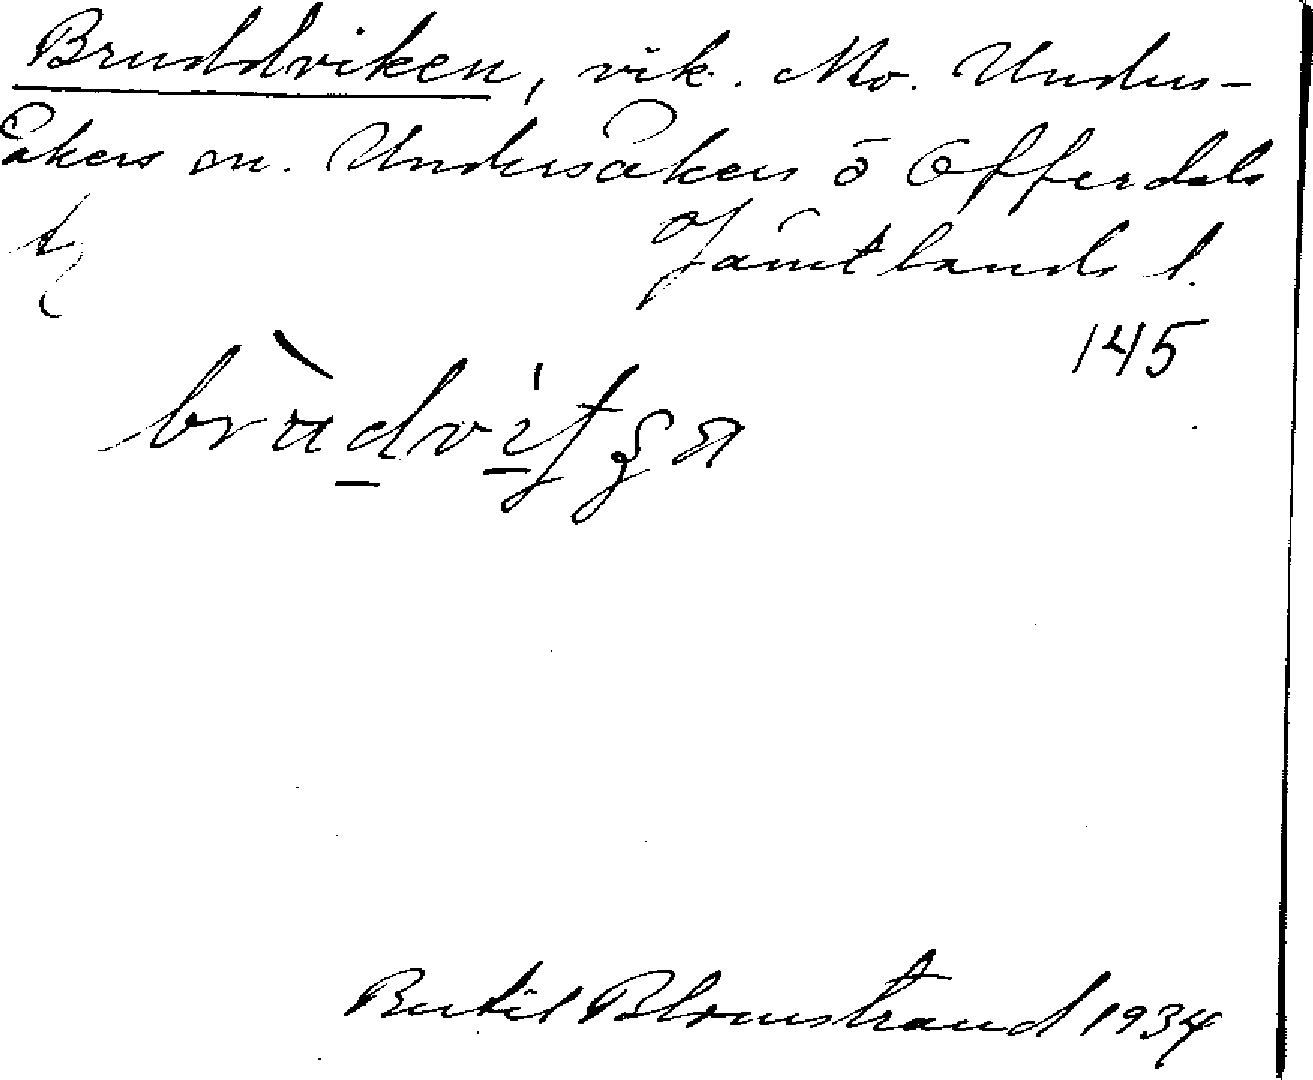 Bruddviken, vik. Mo. Unders-
åkers sn. Undersåkers o Offerdals
tg
Jämtlands l.
145
Bertil Blomstrand 1934